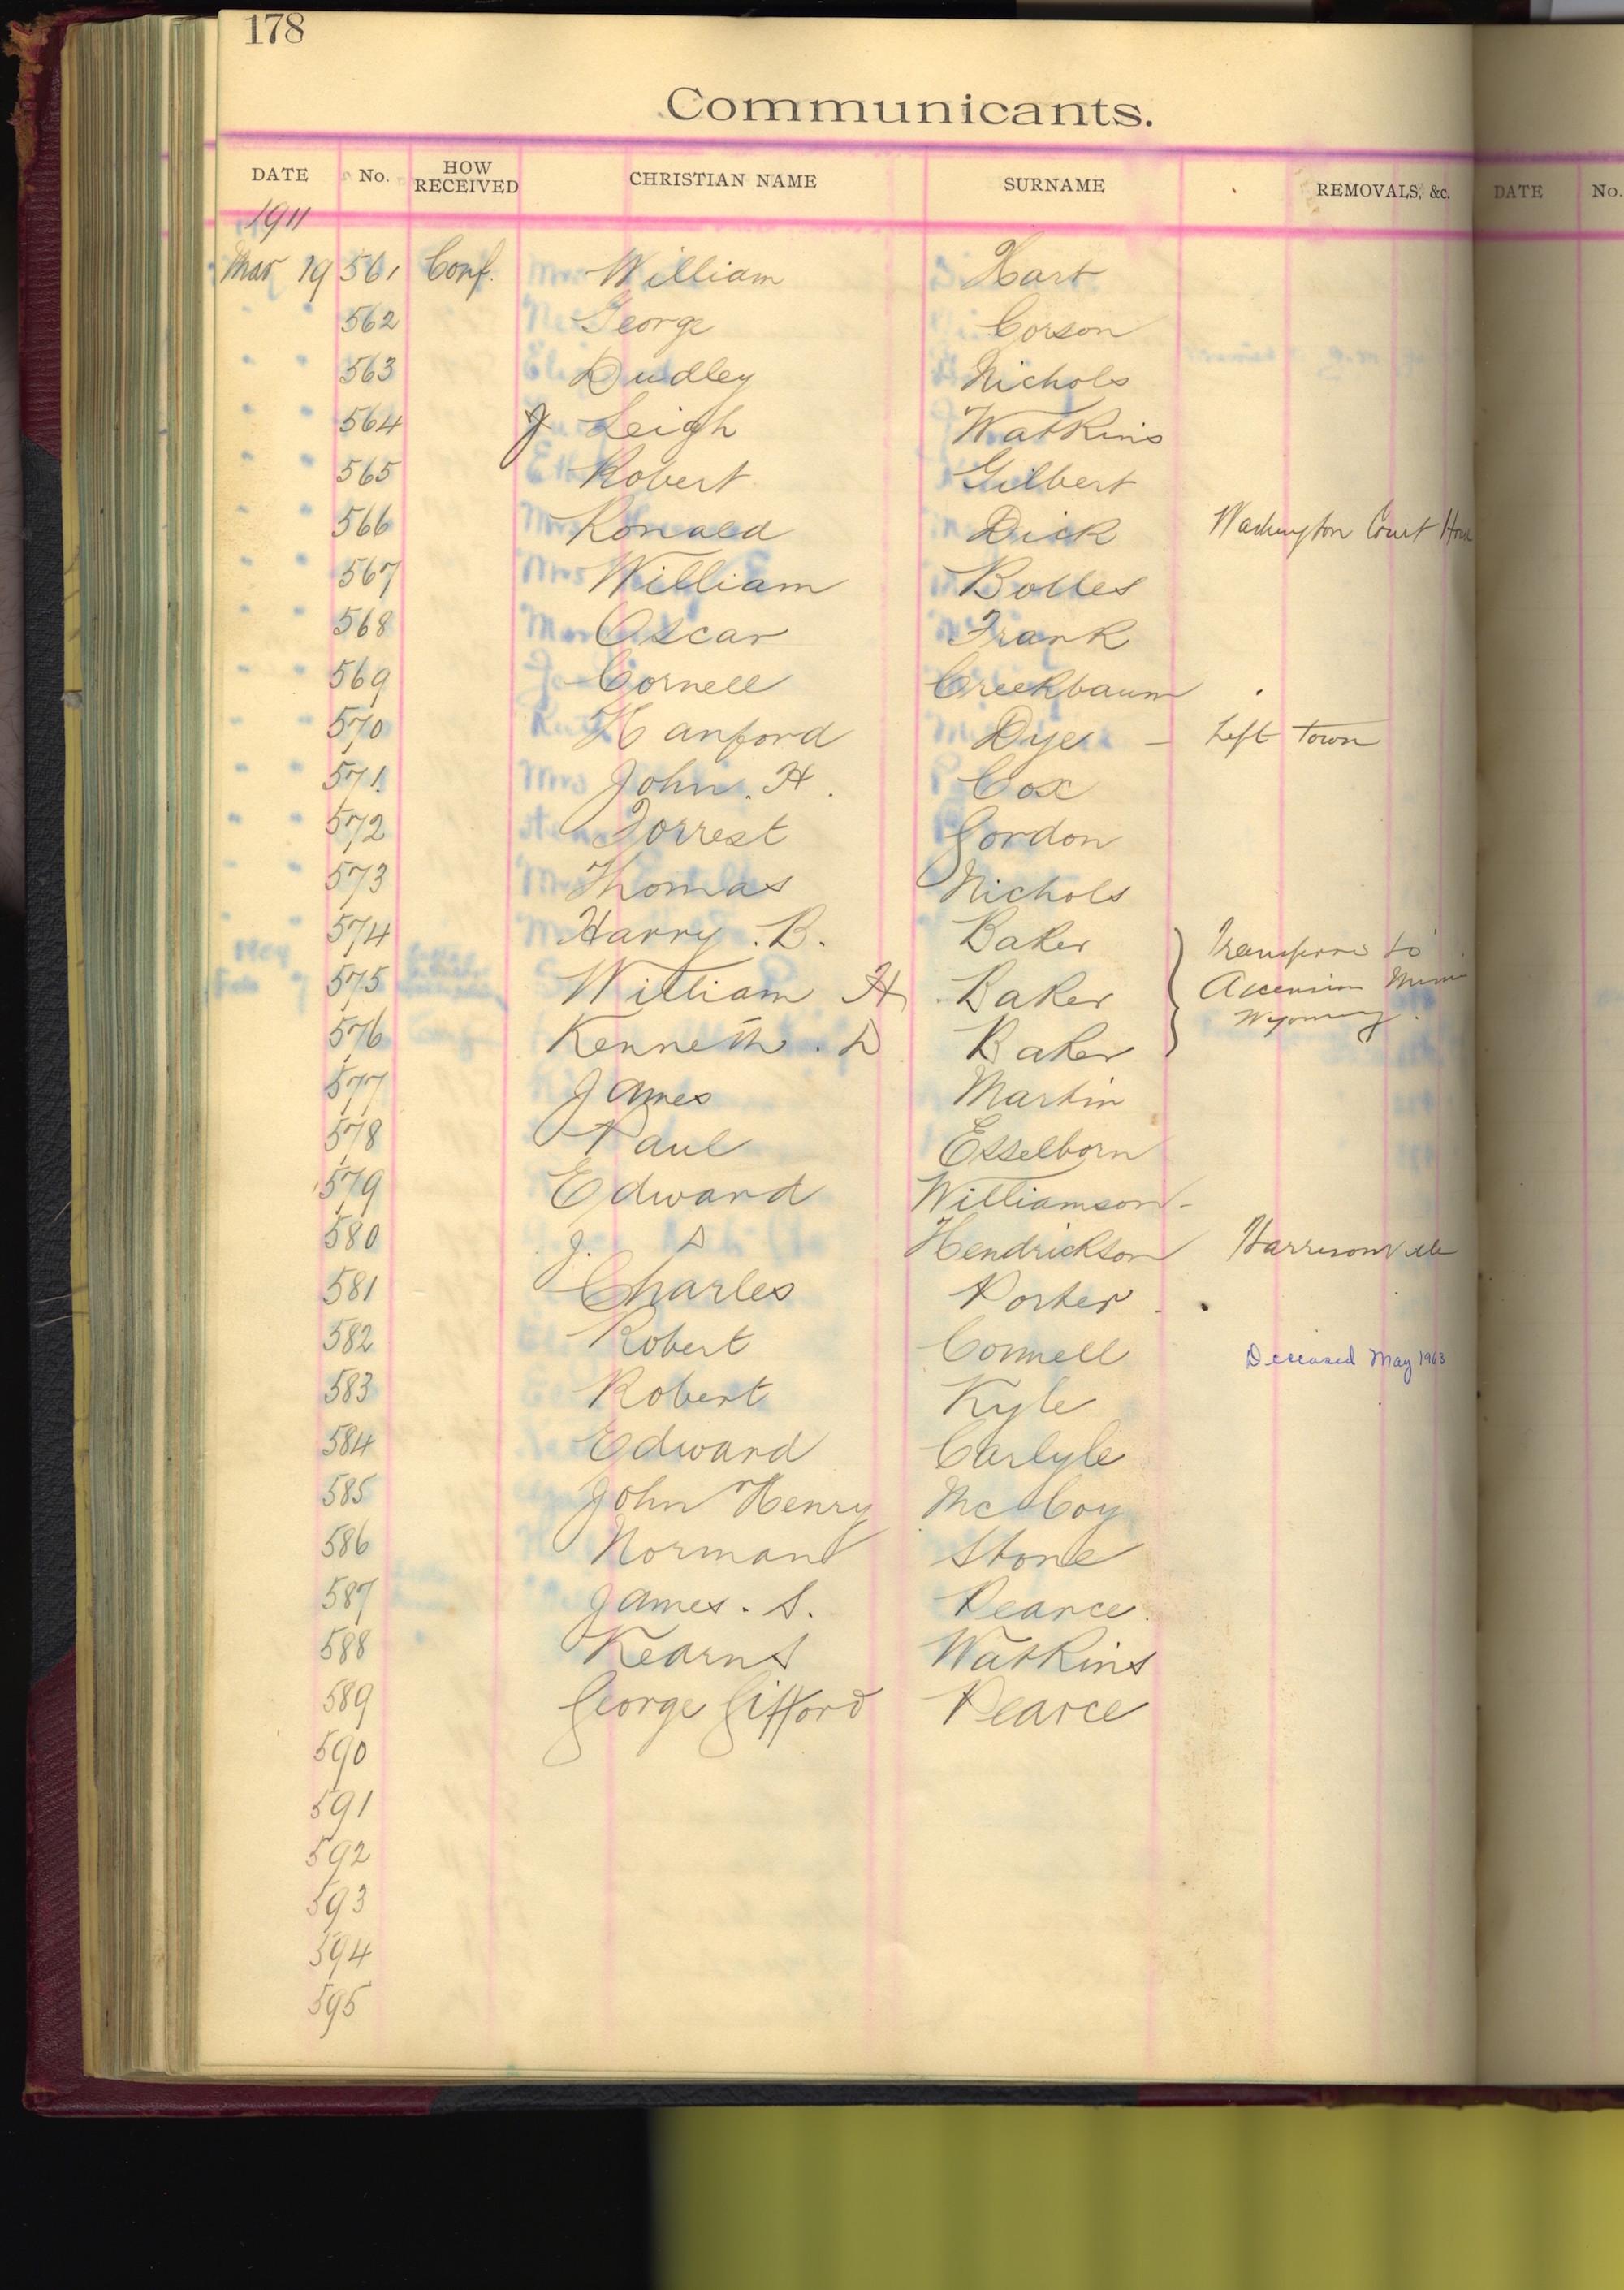 178
Communicants.
DATE No. HOW RECEIVED CHRISTIAN NAME SURNAME REMOVALS, &c. DATE No.
1911
Mar 19 561 Conf. William Hart
" " 562 George Corson
" " 563 Dudley Nichols
" " 564 J Leigh Watkins
" " 565 Robert Gilbert
" " 566 Ronald Dick Washington Court House
" " 567 William Bolles
" " 568 Oscar Frank
" " 569 Cornell Creekbaum
" " 570 Hanford Dye - Left town
" " 571 John. H. Cox
" " 572 Forrest Gordon
" " 573 Thomas Nichols
" " 574 Harry. B. Baker Transferred to
575 William H Baker Ascension
576 Kenneth. D Baker Wyoming.
577 James Martin
578 Paul Esselborn
579 Edward Williamson-
580 J. S Hendrickson Harrisonville
581 Charles Porter
582 Robert Connell Deceased May 1963
583 Robert Kyle
584 Edward Carlyle
585 John Henry McCoy
586 Norman Stone
587 James. S. Pearce.
588 Kearns Watkins
589 George Gifford Pearce
590
591
592
593
594
595